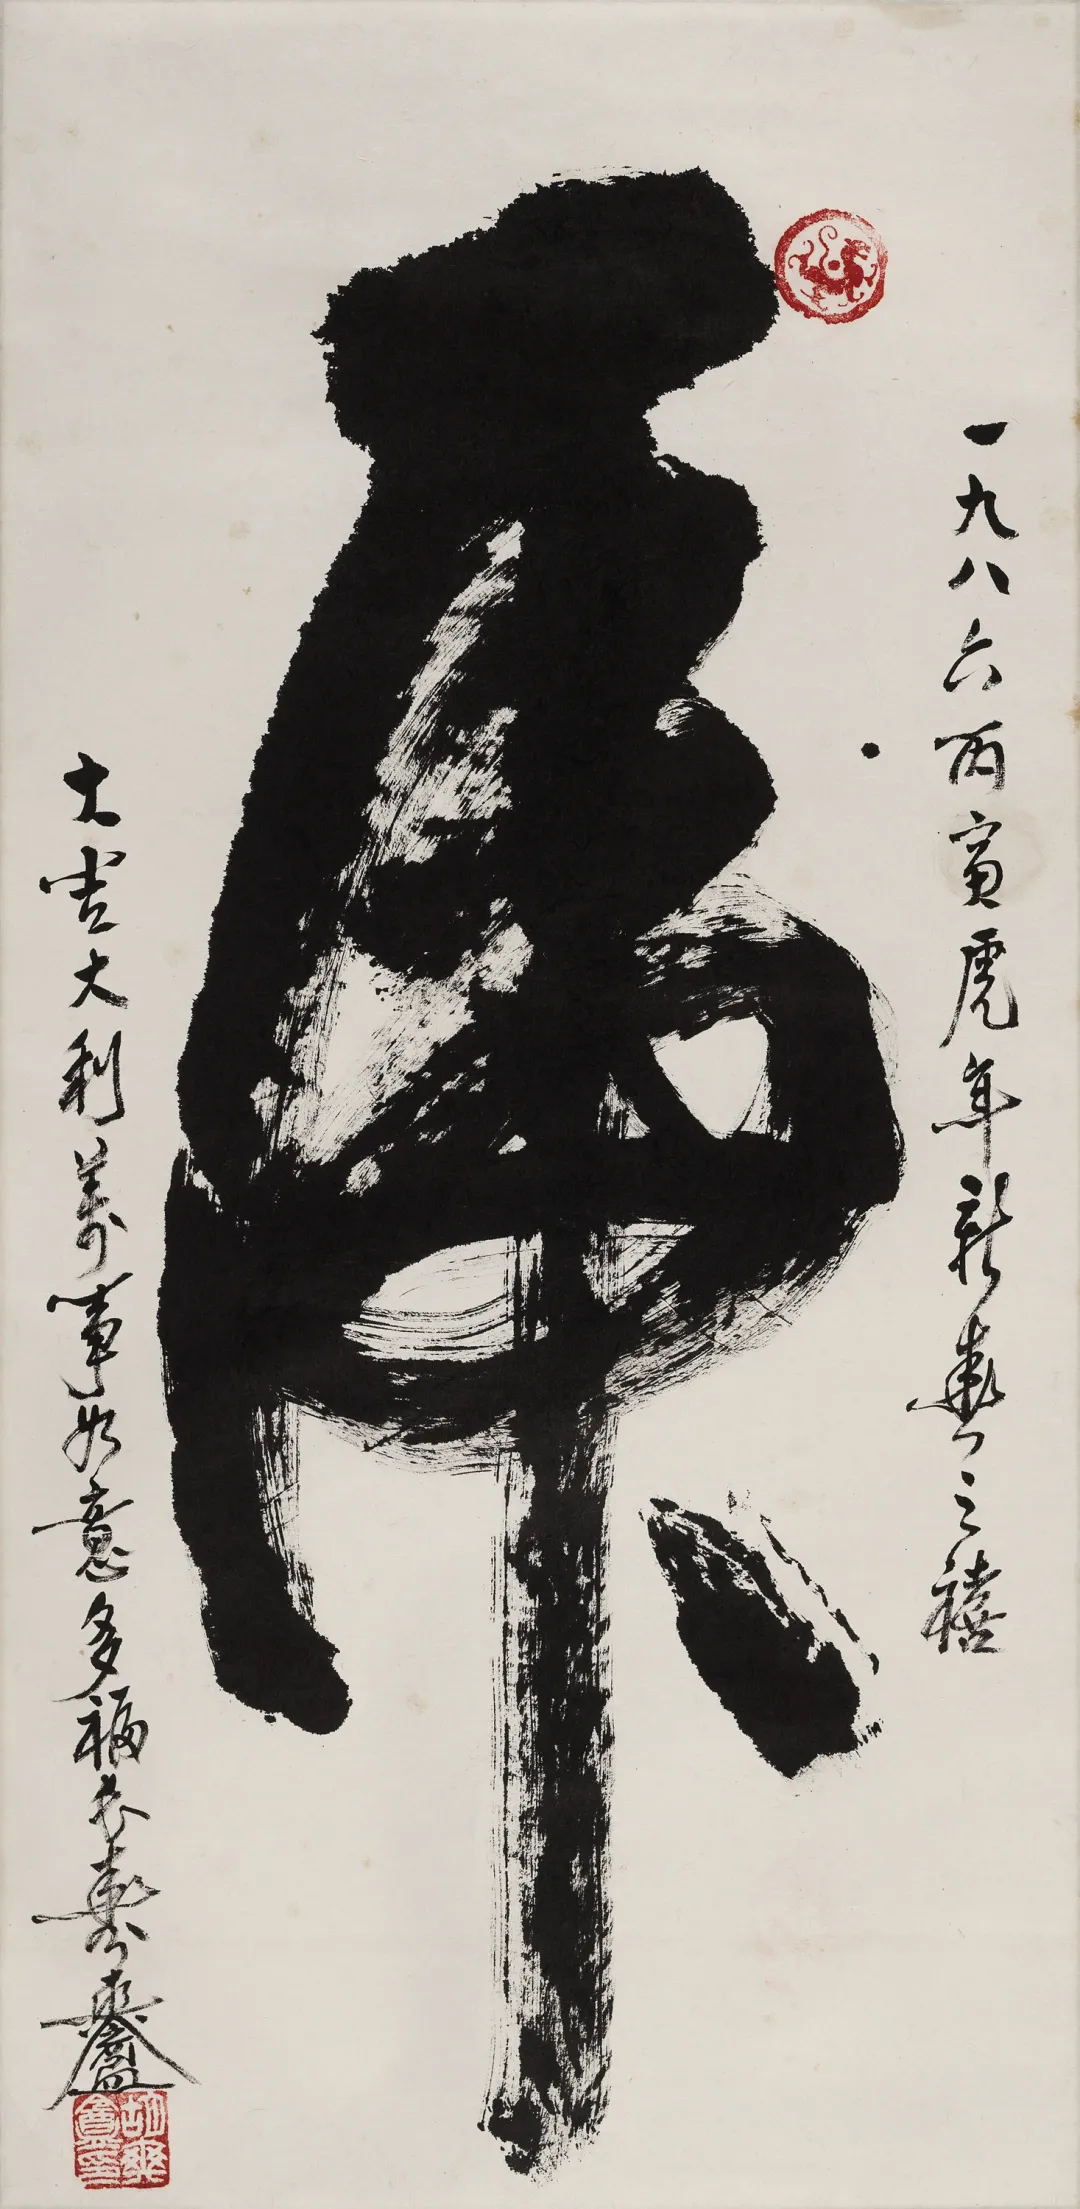 一九八六丙寅虎年新之禧
虎
大吉大利萬事如意多福長壽爽盦
胡爽盦印